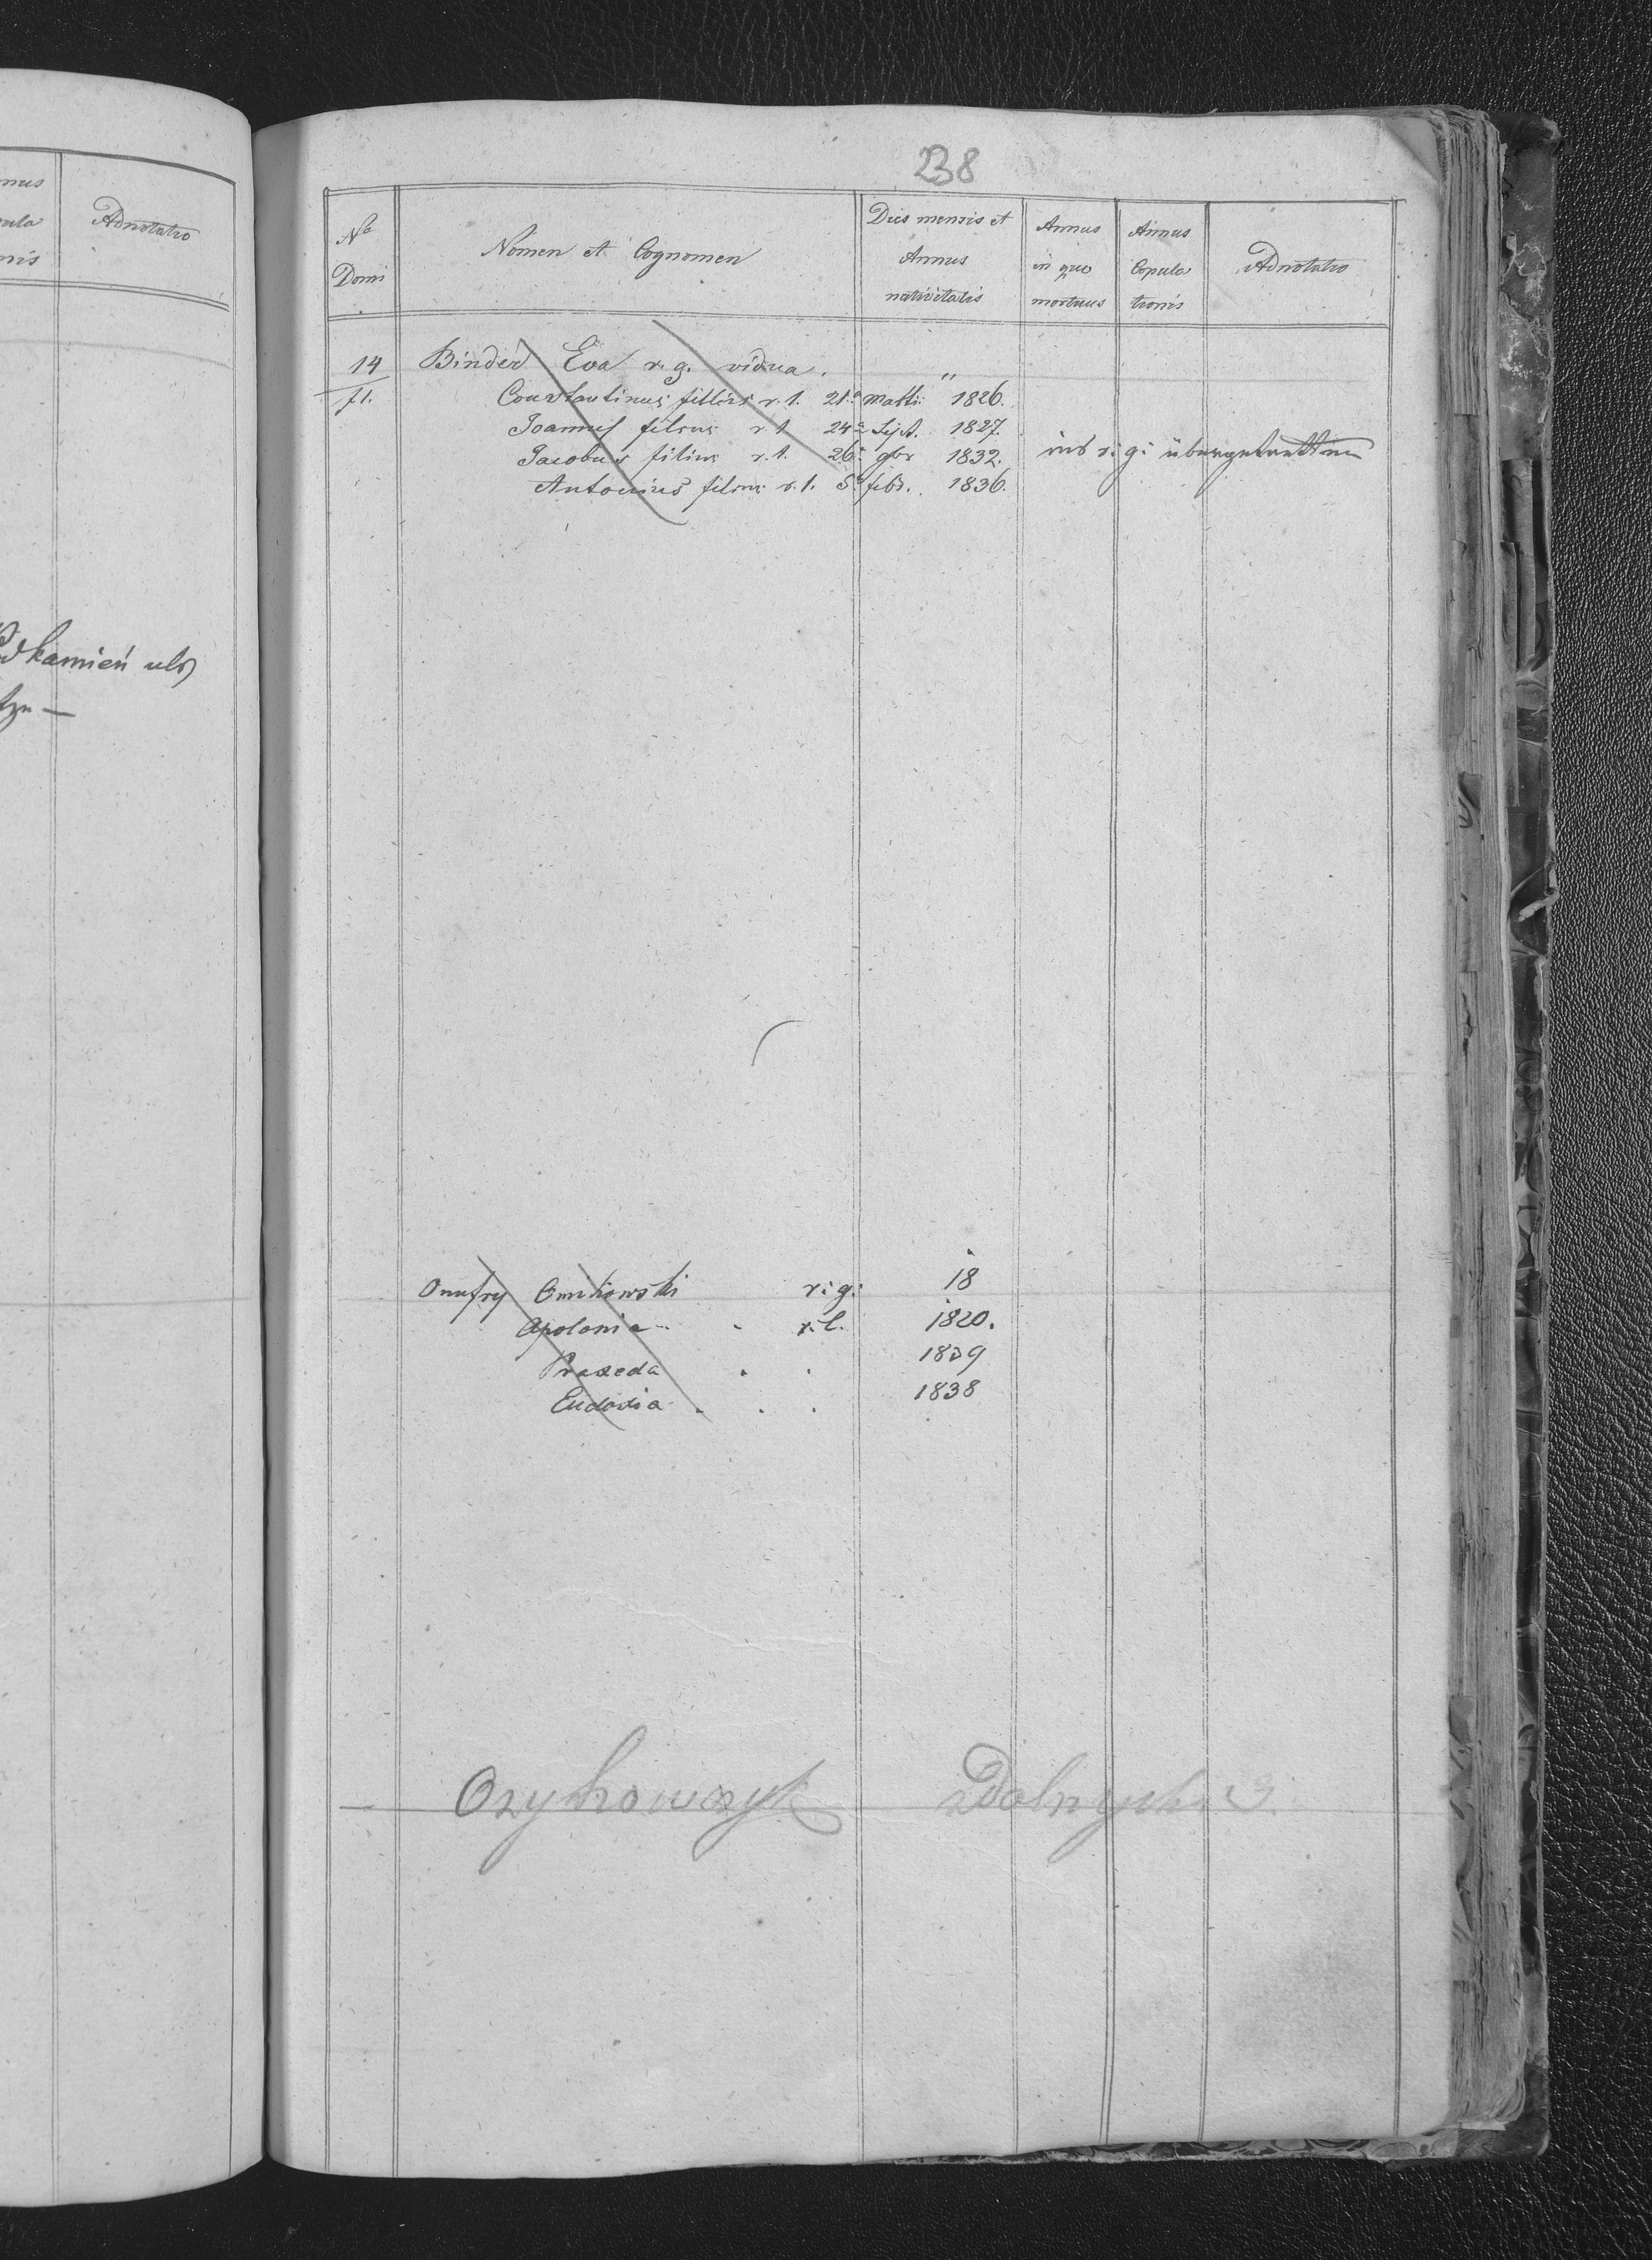 nus
pula
nis
Adnotatio
kamień
238
No Domi
Nomen et Cognomen
Dies mensis et Annus nativitatis
Annus in quo mortuus
Annus Copulationis
Adnotatio
14 Binder Eva r. g. vidua. "
Constantinus filius r. l. 21a Martii 1826.
Joannes filius r. l. 24a Sept. 1827.
Jacobus filius r. l. 26a 9br 1832. ins r: g: übergetretten
Antonius filius r. l. 5a febr. 1836.
Onufry r: g: 18
Apolonia r. l. 1820.
Praxeda 1839
Eudoxia 1838